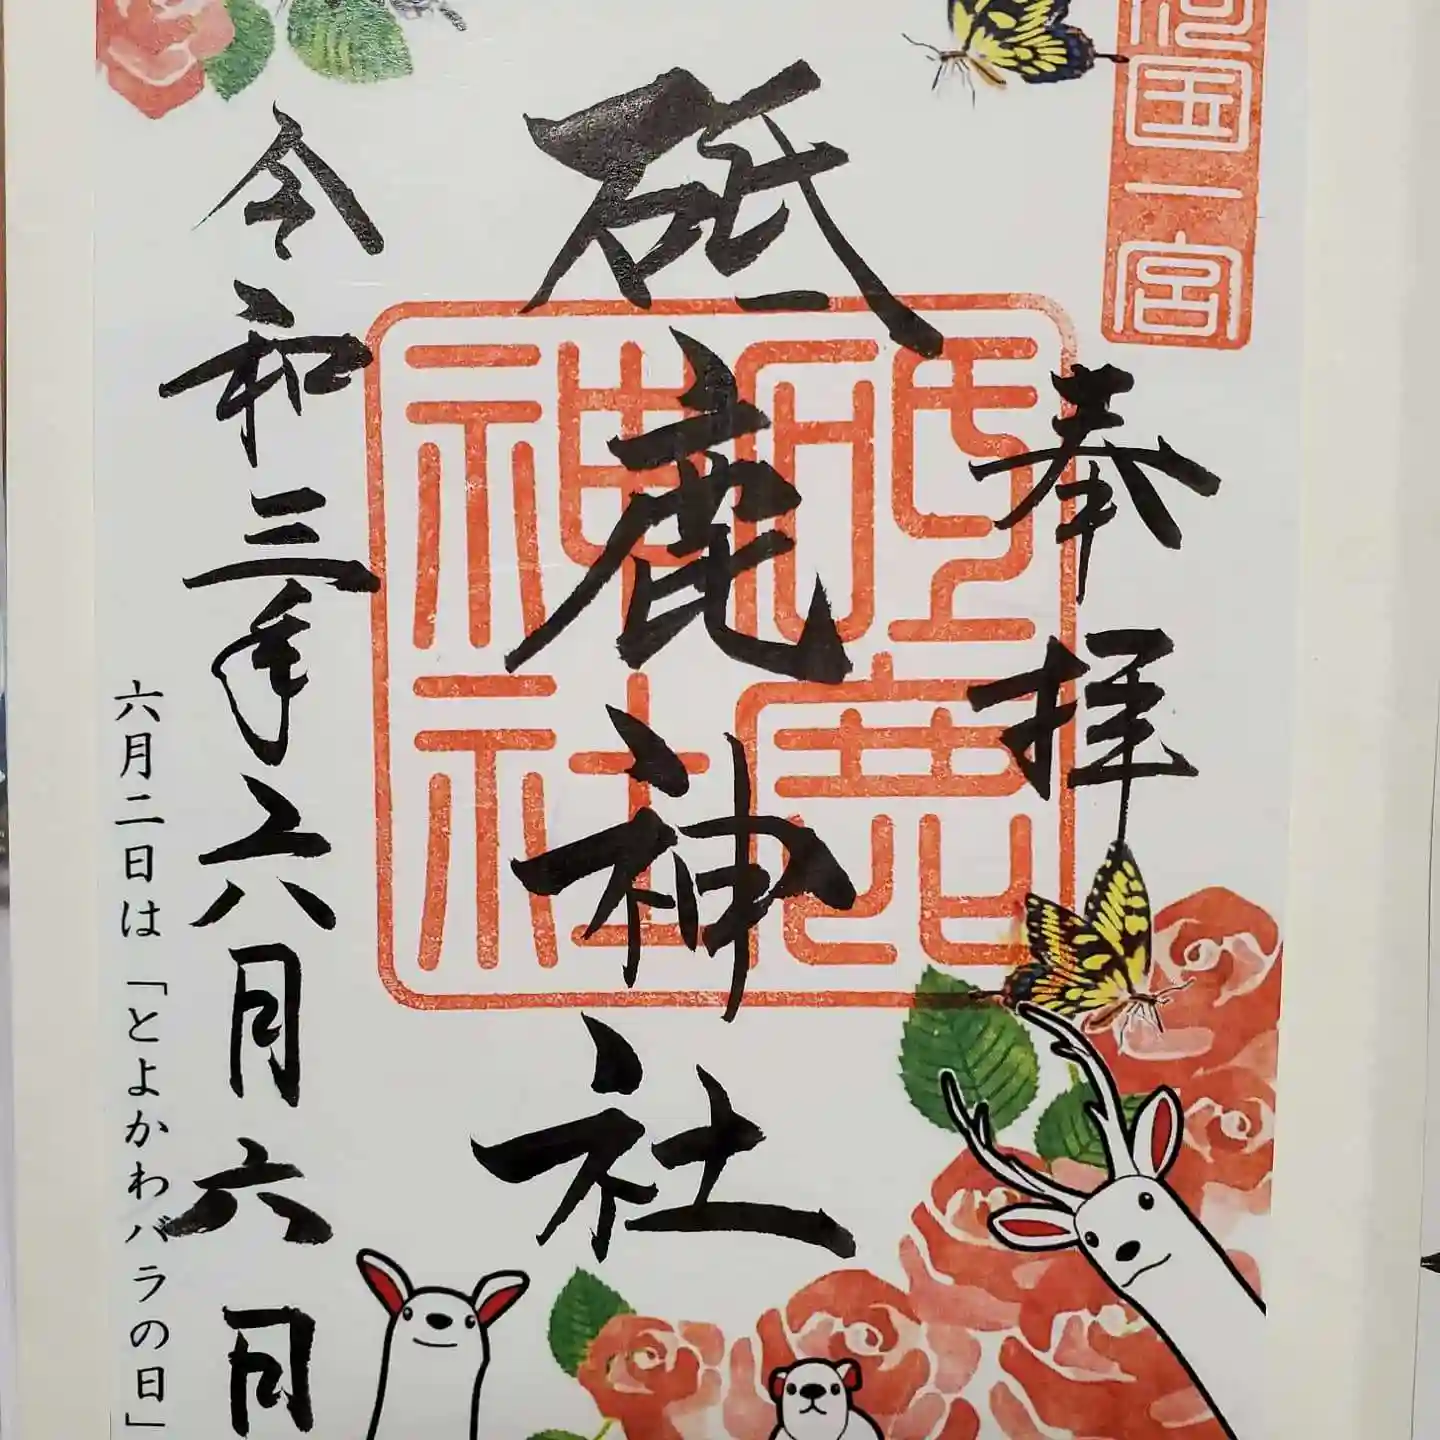 国一宮
奉拝
砥鹿神社
砥鹿神社
令和三年六月六日
六月二日は「とよかわバラの日」